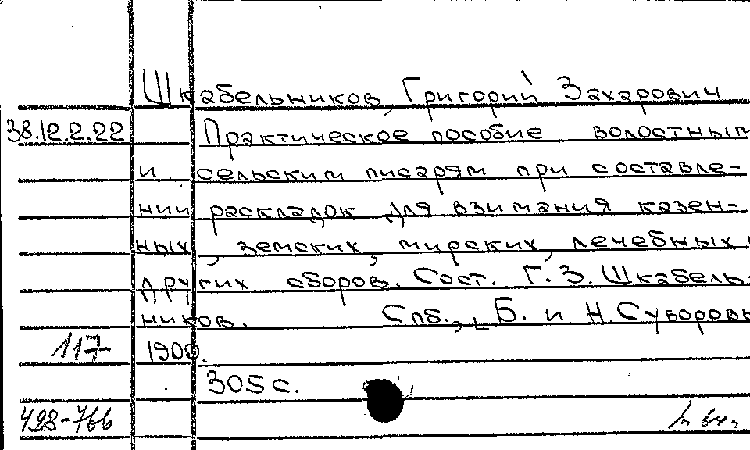 Шкабельников, Григорий Захарович
38.12.2.22 Практическое пособие волостным
и сельским писарям при составле-
нии раскладок для взимания казен-
ных, земских, мирских, лечебных и
других сборов. Сост. Г. З. Шкабель-
ников. Спб., Б. и Н. Суворовы
117 1900.
305 с.
498-766